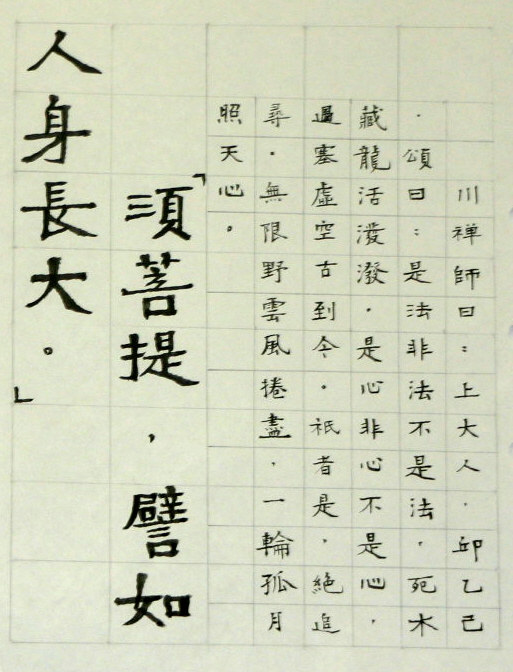 川禅師曰：上大人．邱乙己
．頌曰：是法非法不是法．死木
藏龍活潑潑．是心非心不是心，
逼塞虛空古到今．祇者是，絕追
尋．無限野雲風捲盡．一輪孤月
照天心。
「須菩提，譬如
人身長大。」